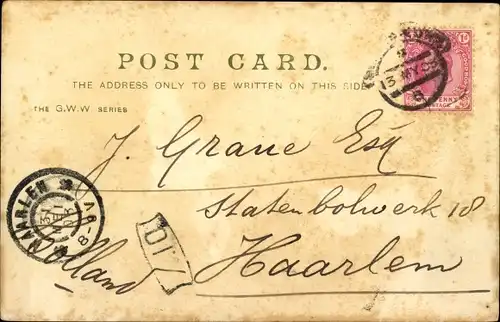 POST CARD.
THE ADDRESS ONLY TO BE WRITTEN ON THIS SIDE
THE G.W.W SERIES
J. Graue Esq
Statenbolwerk 18
Haarlem
Holland
HAARLEM
PENNY